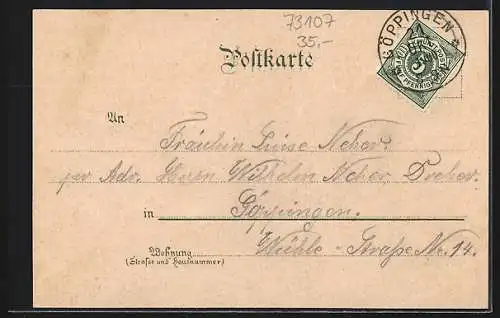 73107
35,-
GÖPPINGEN
Postkarte
An
Fräulein Luise Neher.
per Adr. Herrn Wilhelm Neher Dreher.
in Göppingen.
Wohnung
(Strasse und Hausnummer)
Mühle-Straße Nr. 14.